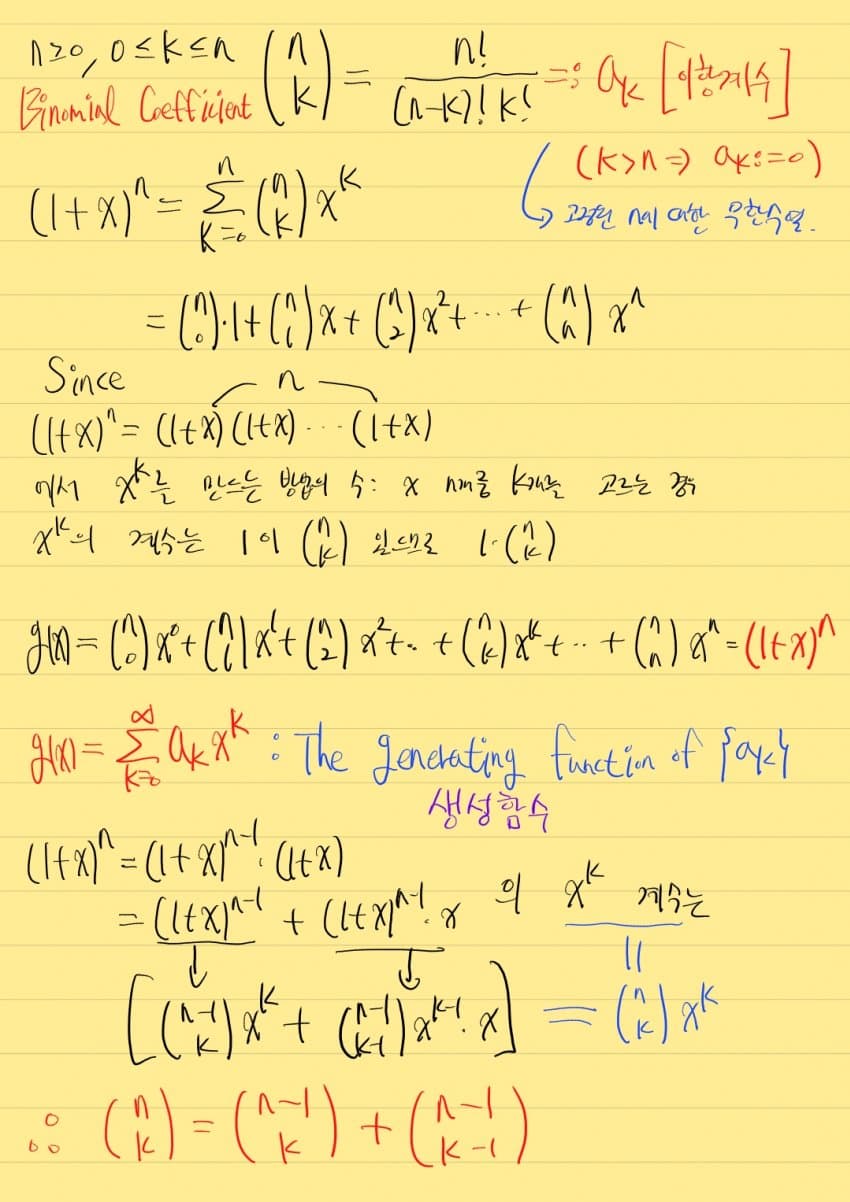 n≥0, 0≤k≤n (n k) = n!/((n-k)! k!) =: aₖ [이항계수]
Binomial Coefficient
(k>n ⇒ aₖ:=0)
↳ 고정된 n에 대한 무한수열.
(1+x)ⁿ = Σ_{k=0}^{n} (n k) xᵏ
= (n 0)·1 + (n 1)x + (n 2)x² + ⋯ + (n n) xⁿ
Since
n
(1+x)ⁿ = (1+x)(1+x) ⋯ (1+x)
에서 xᵏ를 만드는 방법의 수: x n개중 k개를 고르는 경우
xᵏ의 계수는 1이 (n k) 있으므로 1·(n k)
g(x) = (n 0)x⁰ + (n 1)x¹ + (n 2)x² + ‥ + (n k)xᵏ + ‥ + (n n)xⁿ = (1+x)ⁿ
g(x) = Σ_{k=0}^{∞} aₖxᵏ : The generating function of {aₖ}
생성함수
(1+x)ⁿ = (1+x)ⁿ⁻¹·(1+x)
= (1+x)ⁿ⁻¹ + (1+x)ⁿ⁻¹·x 의 xᵏ 계수는
[(n-1 k)xᵏ + (n-1 k-1)xᵏ⁻¹·x] = (n k)xᵏ
∴ (n k) = (n-1 k) + (n-1 k-1)